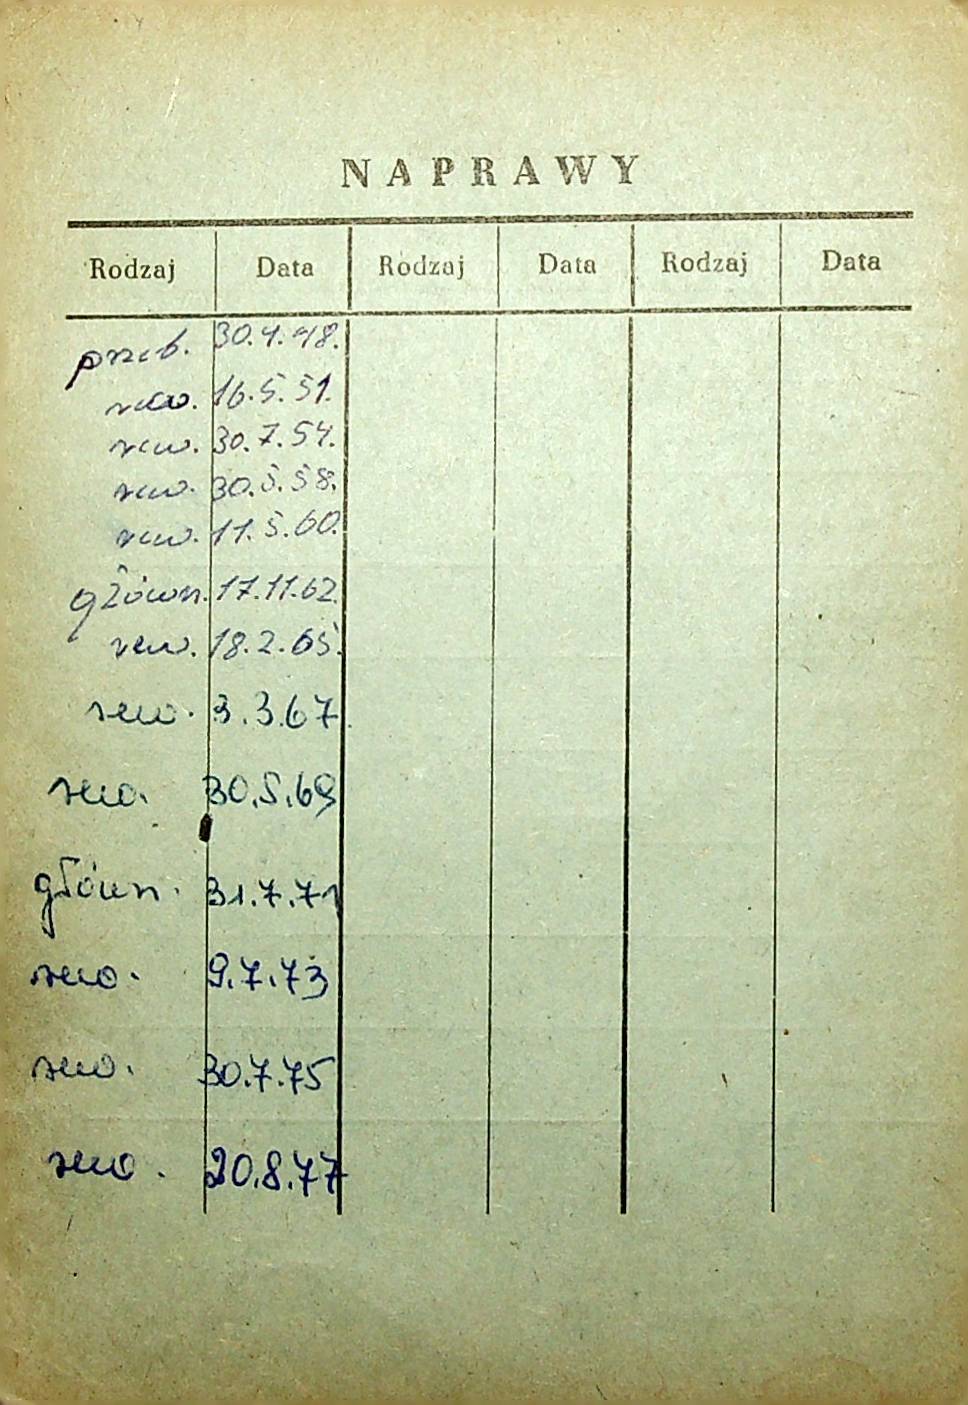 NAPRAWY
Rodzaj Data Rodzaj Data Rodzaj Data
przeb. 30.4.48.
rew. 16.5.51.
rew. 30.7.54.
rew. 30.5.58.
rew. 11.5.60.
główn. 17.11.62.
rew. 18.2.65.
rew. 3.3.67.
rew. 30.5.69
główn. 31.7.71
rew. 9.7.73
rew. 30.7.75
rew. 20.8.77